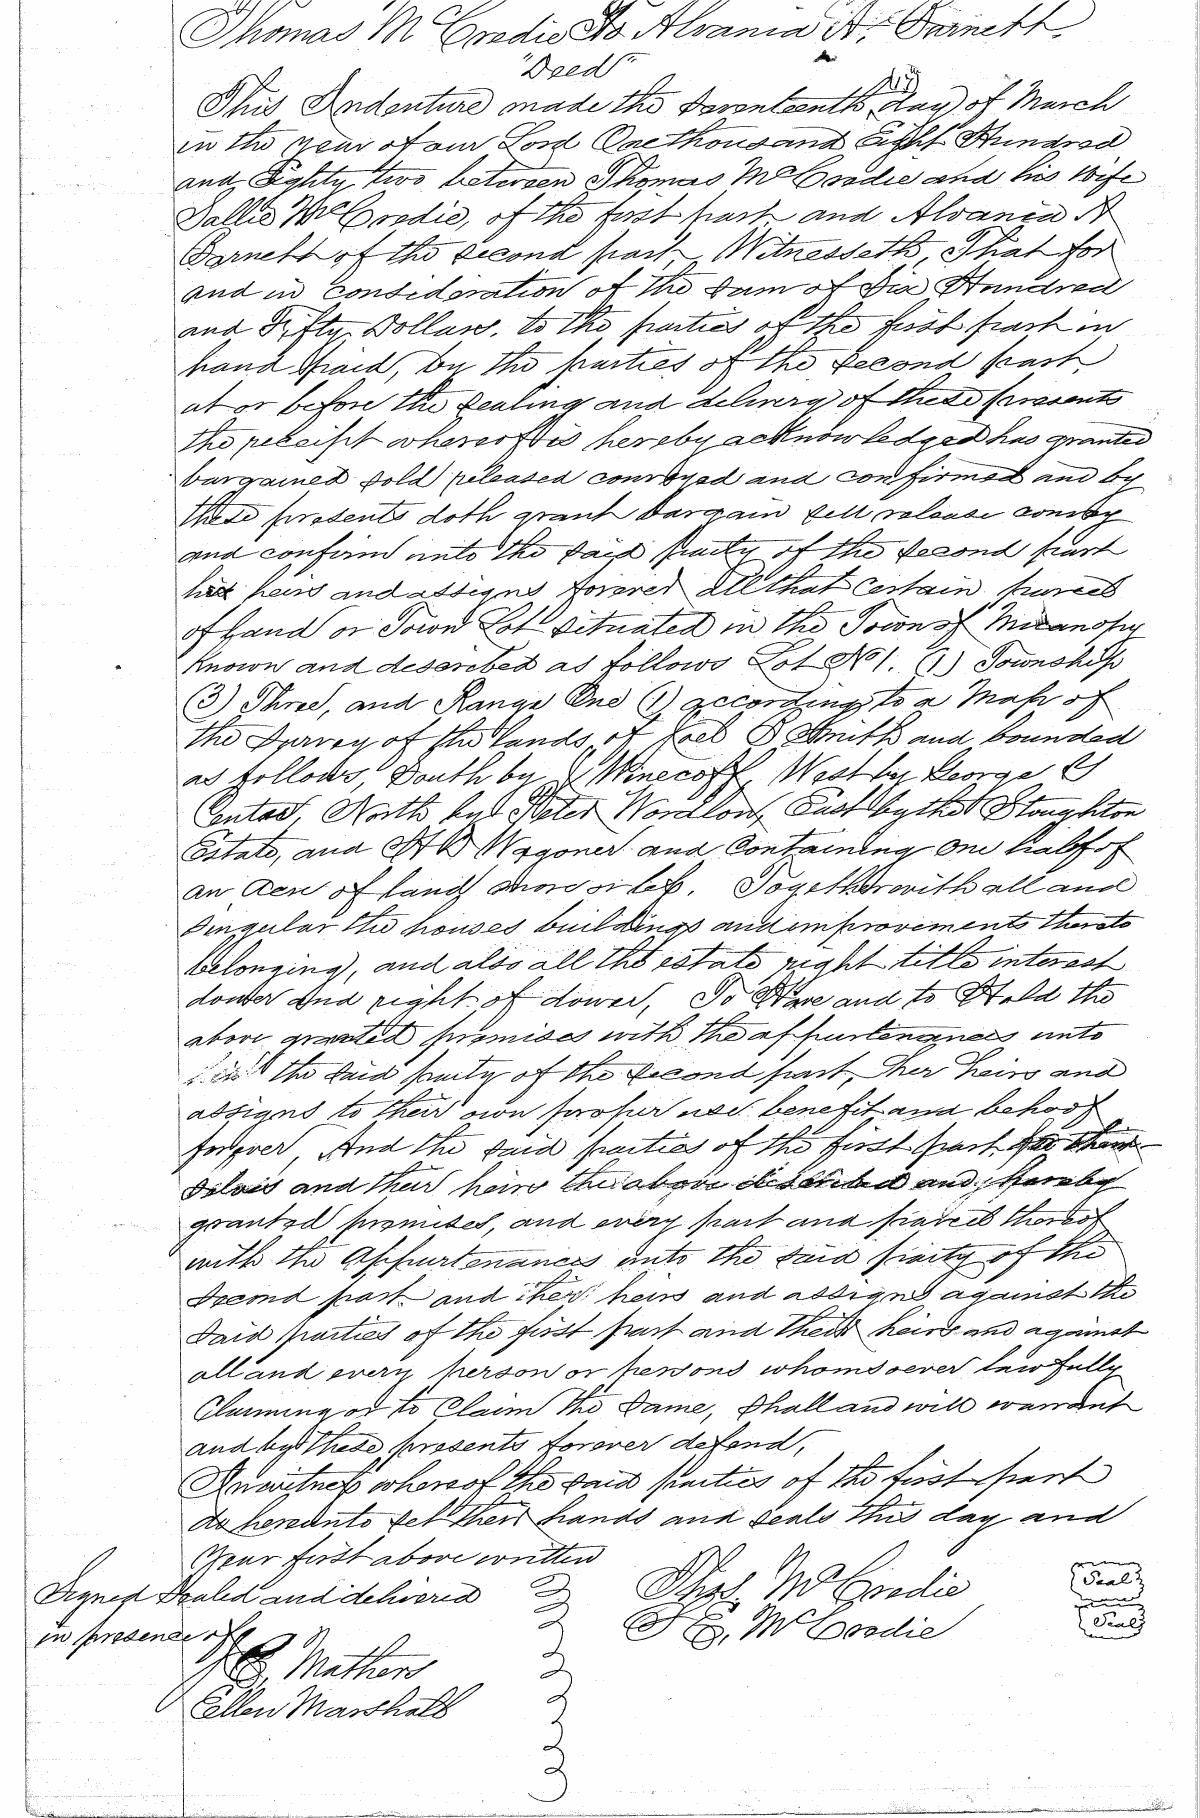 Thomas McCredie To Alvania A. Barnett.
"Deed"
(17)
This Indenture made the Seventeenth day of March
in the year of our Lord One thousand Eight Hundred
and Eighty two between Thomas McCredie and his wife
Sallie McCredie, of the first part and Alvania A
Barnett of the second part, Witnesseth, That for
and in consideration of the sum of Six Hundred
and Fifty Dollars. to the parties of the first part in
hand paid, by the parties of the second part,
at or before the sealing and delivery of these presents
the receipt whereof is hereby acknowledged has granted
bargained sold released conveyed and confirmed and by
these presents doth grant bargain sell release convey
and confirm unto the said party of the second part
her heirs and assigns forever all that certain parcel
of Land or Town Lot situated in the Town of Micanopy
known and described as follows Lot No 1. (1) Township
(3) Three, and Range One (1) according to a Map of
the Survey of the lands of Joel B Smith and bounded
as follows, South by Winecoff, West by George
Center, North by Peter Wordlow, East by the Stoughton
Estate, and H B Wagoner and Containing one half of
an Acre of land more or less. Together with all and
singular the houses buildings and improvements thereto
belonging, and also all the estate right title interest
dower and right of dower, To Have and to Hold the
above granted premises with the appurtenances unto
the said party of the second part, her heirs and
assigns to their own proper use benefit and behoof
forever, And the said parties of the first part for them
selves and their heirs the above described and hereby
granted premises, and every part and parcel thereof
with the Appurtenances unto the said party of the
second part and her heirs and assigns against the
said parties of the first part and their heirs and against
all and every person or persons whomsoever lawfully
Claiming or to Claim the same, shall and will warrant
and by these presents forever defend,
In witness whereof the said parties of the first part
do hereunto set their hands and seals this day and
year first above written
Signed Sealed and delivered
in presence of
Thos. McCredie Seal
S E. McCredie Seal
Mathers
Ellen Marshall